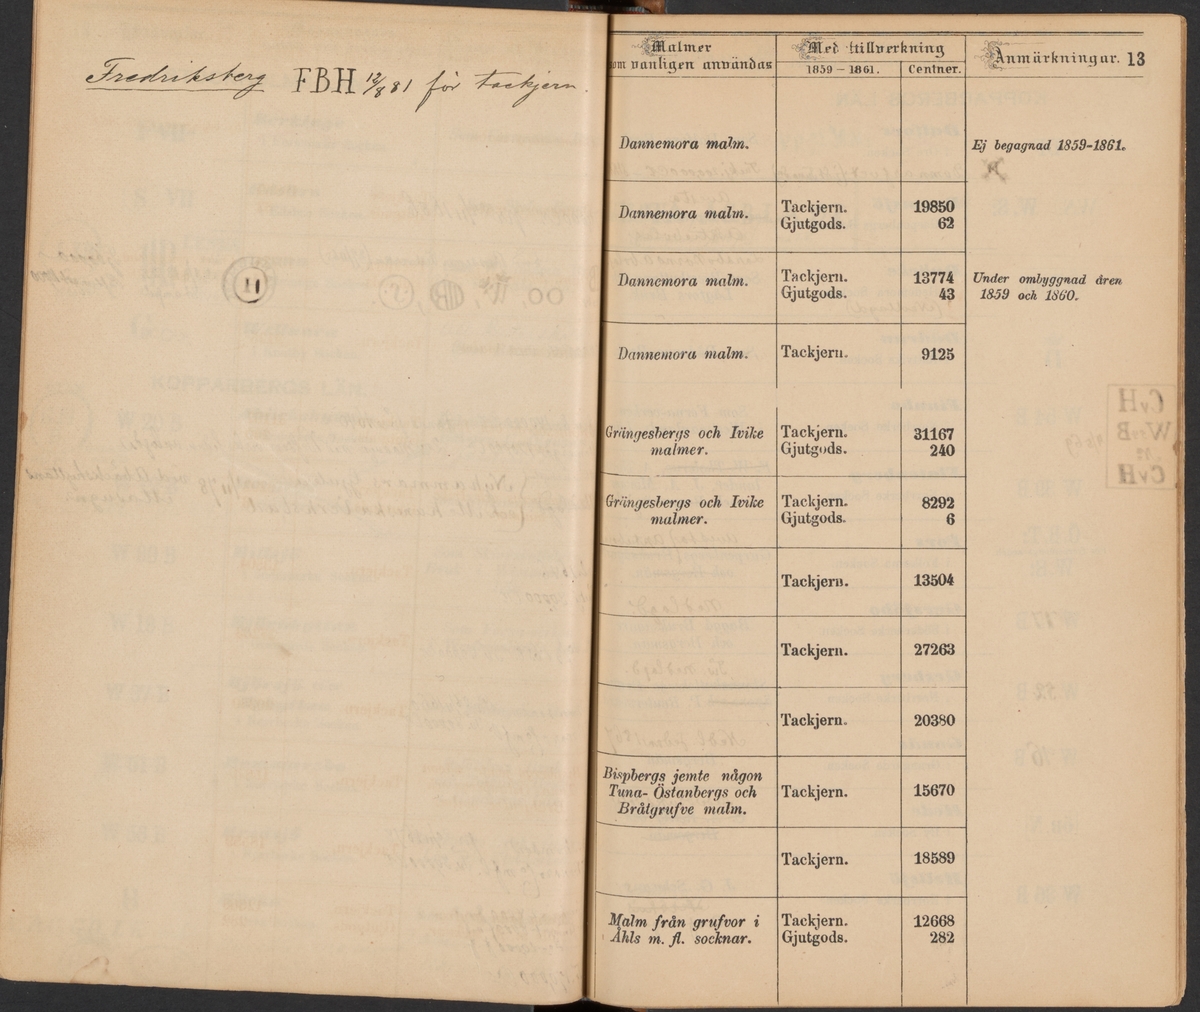 Fredriksberg FBH 12/8 81 för tackjern.
Malmer
som vanligen användas
Med tillverkning
1859 – 1861. Centner.
Anmärkningar. 13
Dannemora malm. Ej begagnad 1859-1861.
Dannemora malm. Tackjern. 19850
Gjutgods. 62
Dannemora malm. Tackjern. 13774 Under ombyggnad åren
Gjutgods. 43 1859 och 1860.
Dannemora malm. Tackjern. 9125
Grängesbergs och Ivike Tackjern. 31167
malmer. Gjutgods. 240
Grängesbergs och Ivike Tackjern. 8292
malmer. Gjutgods. 6
Tackjern. 13504
Tackjern. 27263
Tackjern. 20380
Bispbergs jemte någon
Tuna- Östanbergs och Tackjern. 15670
Bråtgrufve malm.
Tackjern. 18589
Malm från grufvor i Tackjern. 12668
Åhls m. fl. socknar. Gjutgods. 282